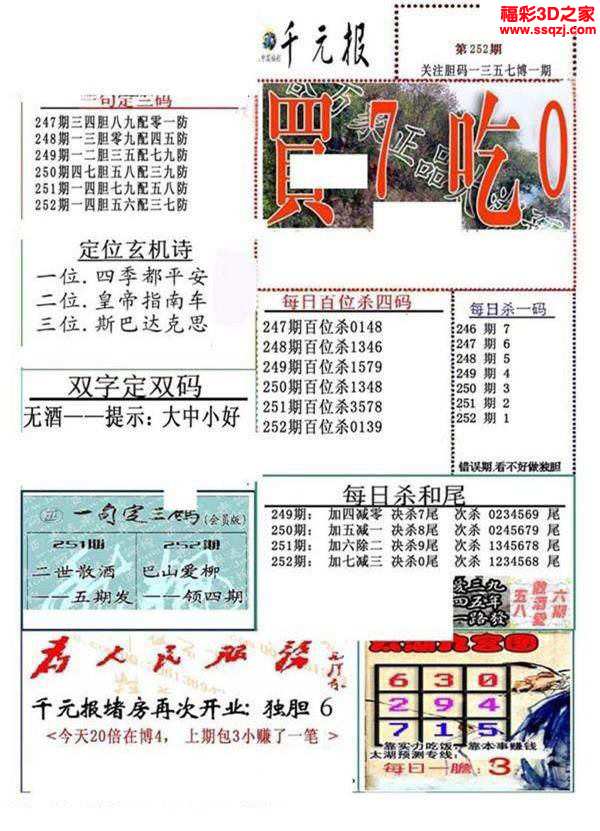 福彩3D之家
www.ssqzj.com
千元报
第252期
关注胆码一三五七博一期
一句定三码
247期三四胆八九配零一防
248期一三胆零九配四五防
249期一二胆三五配七九防
250期四七胆五八配三九防
251期一四胆七九配五八防
252期一四胆五六配三七防
買7吃0
定位玄机诗
一位.四季都平安
二位.皇帝指南车
三位.斯巴达克思
每日百位杀四码
247期百位杀0148
248期百位杀1346
249期百位杀1579
250期百位杀1348
251期百位杀3578
252期百位杀0139
每日杀一码
246 期 7
247 期 6
248 期 5
249 期 4
250 期 3
251 期 2
252 期 1
错误期,看不好做独胆
双字定双码
无酒——提示：大中小好
每日杀和尾
249期： 加四减零 决杀7尾 次杀 0234569 尾
250期： 加五减一 决杀8尾 次杀 0245679 尾
251期： 加六除二 决杀9尾 次杀 1345678 尾
252期： 加七减三 决杀0尾 次杀 1234568 尾
一句定三码(会员版)
251期
二世散酒
——五期发
252期
巴山爱柳
——领四期
为人民服务
千元报堵房再次开业: 独胆 6
<今天20倍在博4， 上期包3小赚了一笔 >
6 3 0
2 9 4
7 1 5
靠实力吃饭，靠本事赚钱
太湖预测专线:
每日一胆: 3